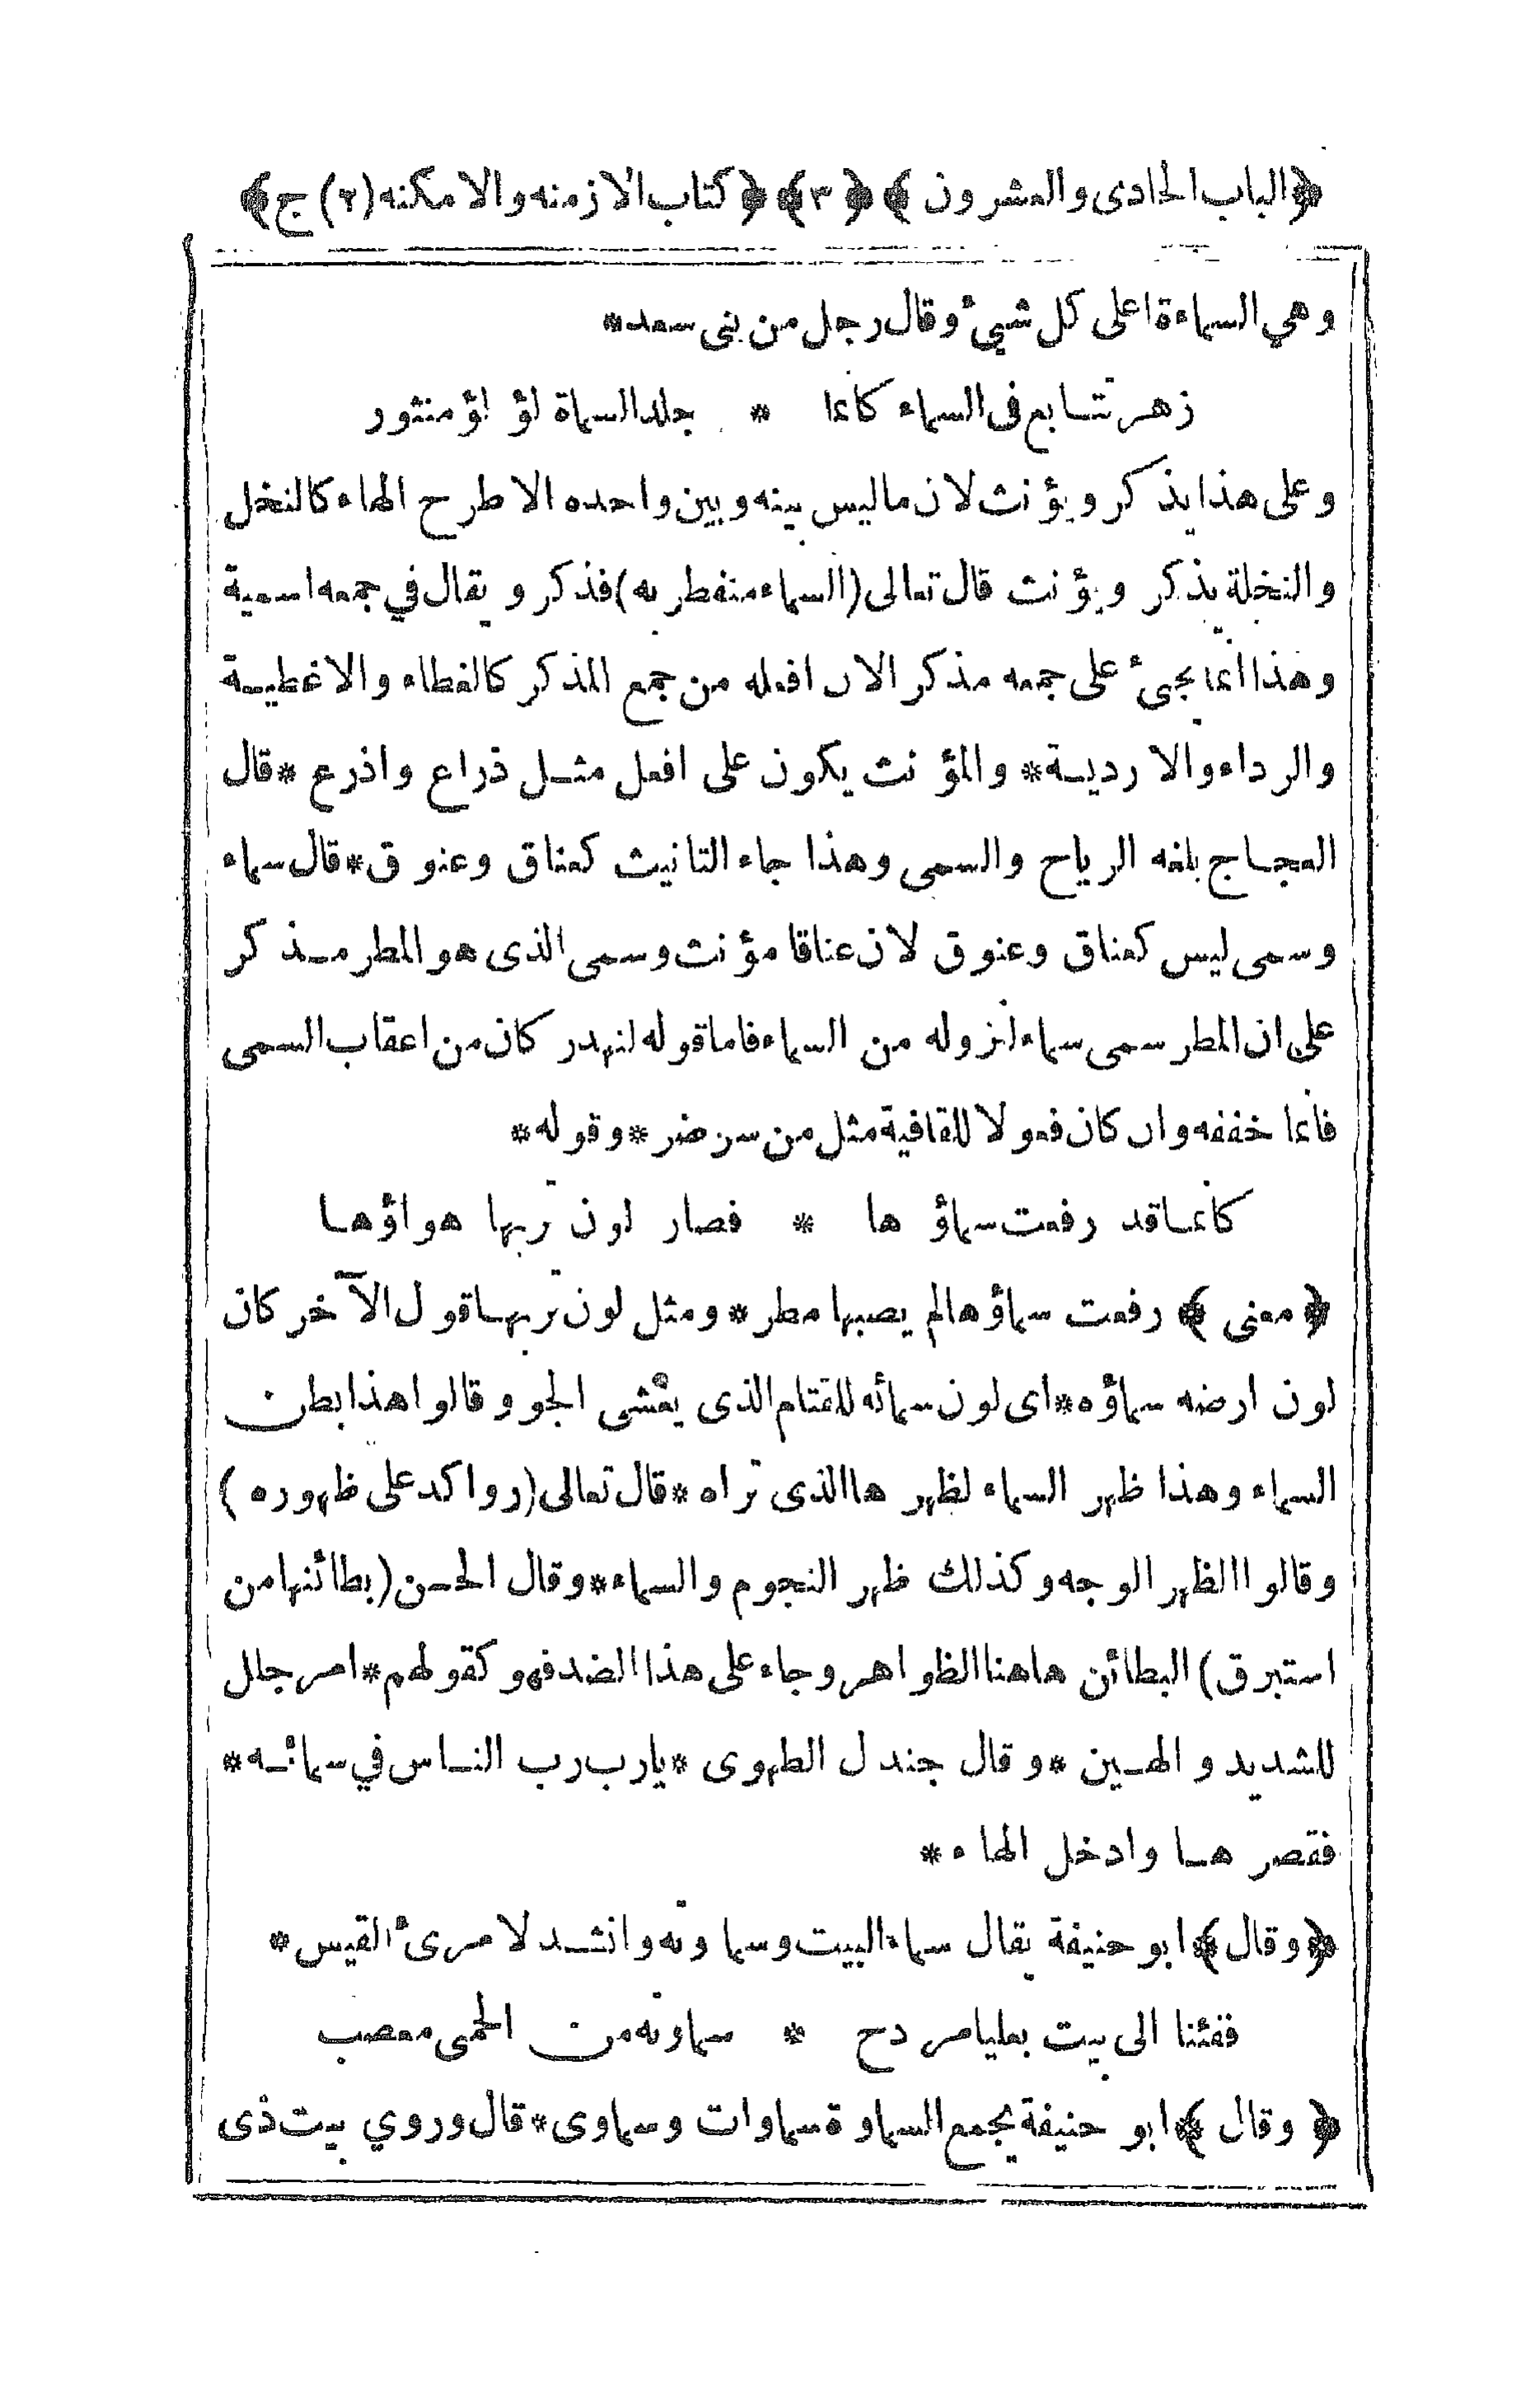 ﴿الباب الحادى والعشرون﴾ ﴿٣﴾ ﴿كتاب الازمنه والامكنه (٢) ج﴾
وهي السماءة اعلى كل شيئ وقال رجل من بنى سعد*
زهر تتابع فى السماء كانما * جلد السماة لؤلؤ منثور
وعلى هذا يذكر ويؤنث لان ماليس بينه وبين واحده الا طرح الهاء كالنخل
والنخلة يذكر ويؤنث قال تعالى (السماء منفطر به) فذكر ويقال في جمعه اسمية
وهذا انما يجئ على جمعه مذكر الان افعله من جمع المذكر كالغطاء والاغطيـة
والرداء والارديـة* والمؤنث يكون على افعل مثـل ذراع واذرع* قال
العجـاج بلغه الرياح والسمى وهذا جاء التانيث كعناق وعنوق* قال سماء
وسمى ليس كعناق وعنوق لان عناقا مؤنث وسمى الذى هو المطر مـذكر
على ان المطر سمى سماء لنزوله من السماء فاما قوله كان من اعقاب السمى
فانما خففه وان كان فعولا للقافية مثل من سر ضر* وقوله*
كانمـا قد رفعت سماؤها * فصار لون تربها هواؤهـا
﴿معنى﴾ رفعت سماؤها لم يصبها مطر* ومثل لون تربهـا قول الآخر كان
لون ارضه سماؤه* اى لون سمائه للقتام الذى يغشى الجو وقالوا هذا بطن
السماء وهذا ظهر السماء لظهرها الذى تراه* قال تعالى (رواكد على ظهوره)
وقالوا الظهر الوجه وكذلك ظهر النجوم والسماء* وقال الحسن (بطائنها من
استبرق) البطائن هاهنا الظواهر وجاء على هذا الضد فهو كقولهم* امر جلل
للشديد والهـين* وقال جندل الطهوى* يارب رب النـاس في سمائـه*
فقصرهـا وادخل الهاء*
﴿وقال﴾ ابو حنيفة يقال سماء البيت وسماوته وانشـد لامرئ القيس*
ففئنا الى بيت بعليا مردح * سماوته من الحمى معصب
﴿وقال﴾ ابو حنيفة يجمع السماوة سماوات وسماوى* قال وروي بيت ذى